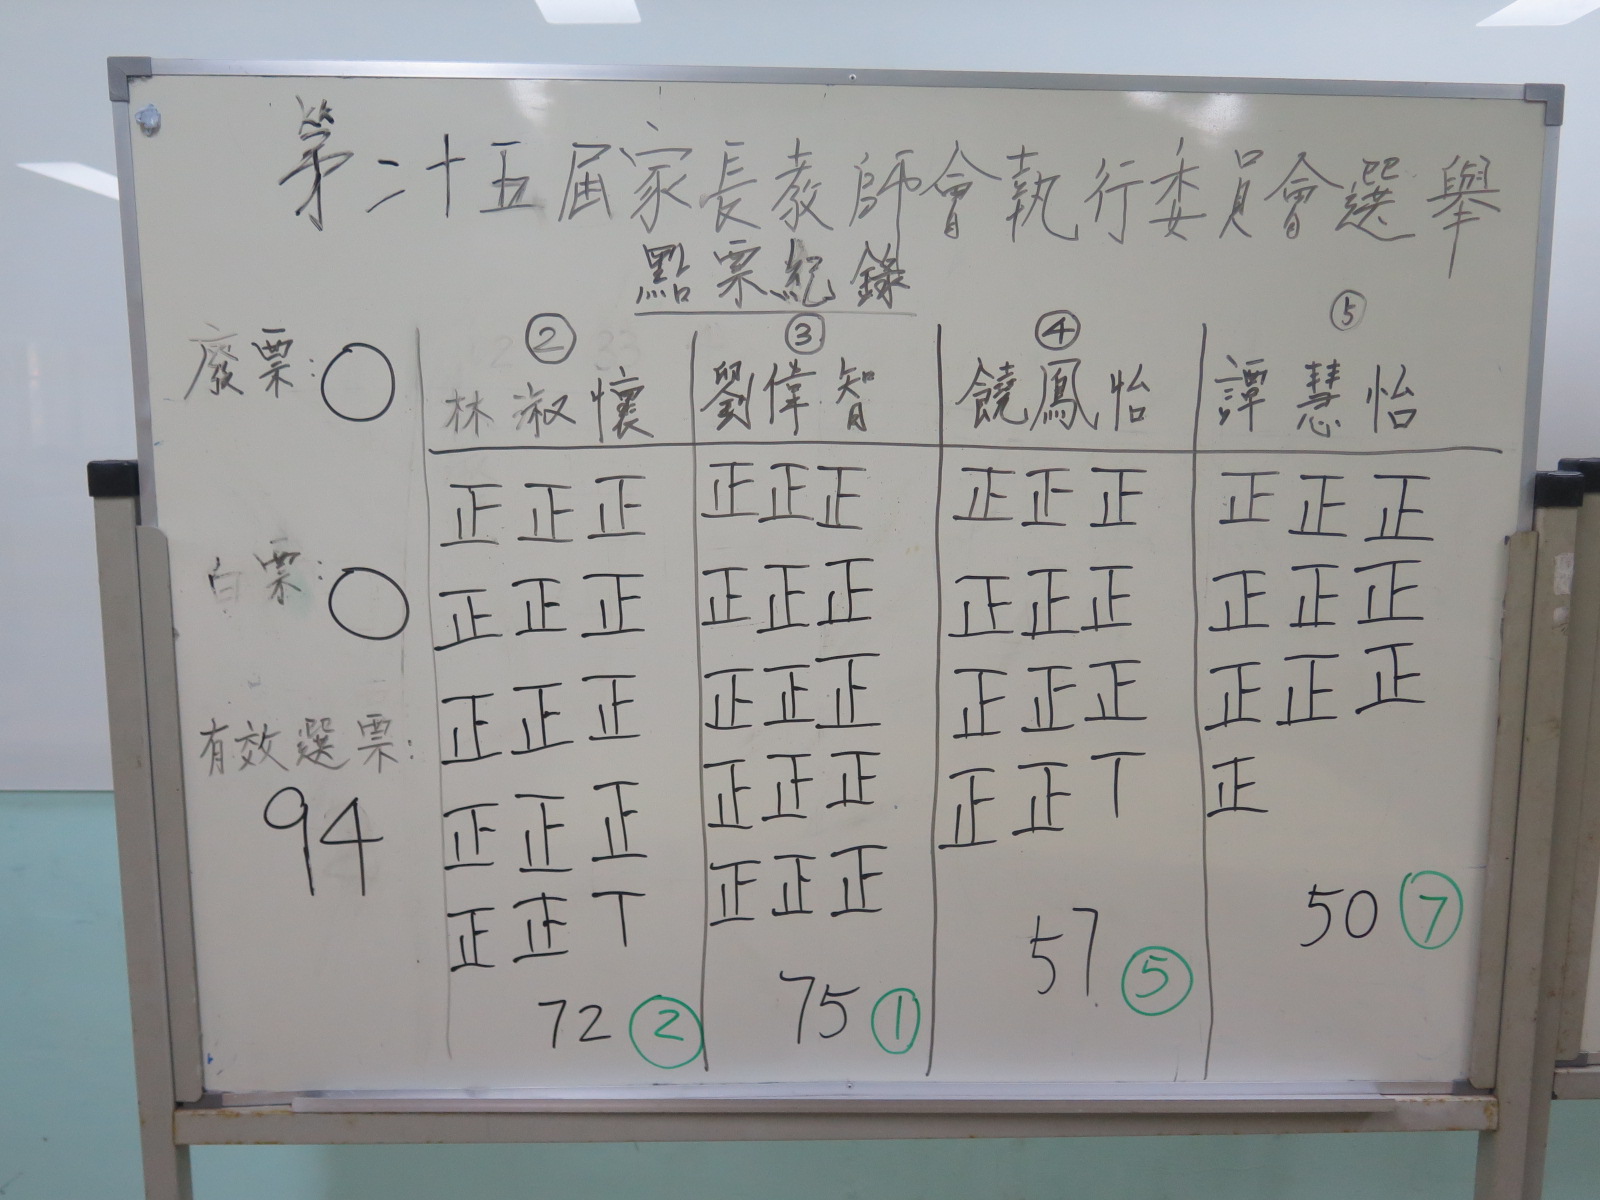 第二十五届家長教師會執行委員會選舉
點票紀錄
廢票：〇
白票：〇
有效選票：
94
② ③ ④ ⑤
林淑懷 劉偉智 饒鳳怡 譚慧怡
正正正 正正正 正正正 正正正
正正正 正正正 正正正 正正正
正正正 正正正 正正正 正正正
正正正 正正正 正正丅 正
正正丅 正正正
72 ② 75 ① 57 ⑤ 50 ⑦